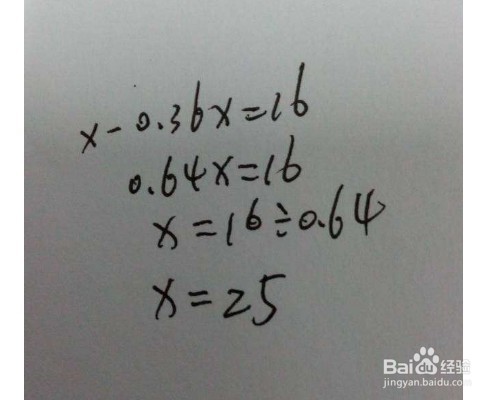 x-0.36x=16
0.64x=16
x=16÷0.64
x=25
Baidu经验
jingyan.baidu.com